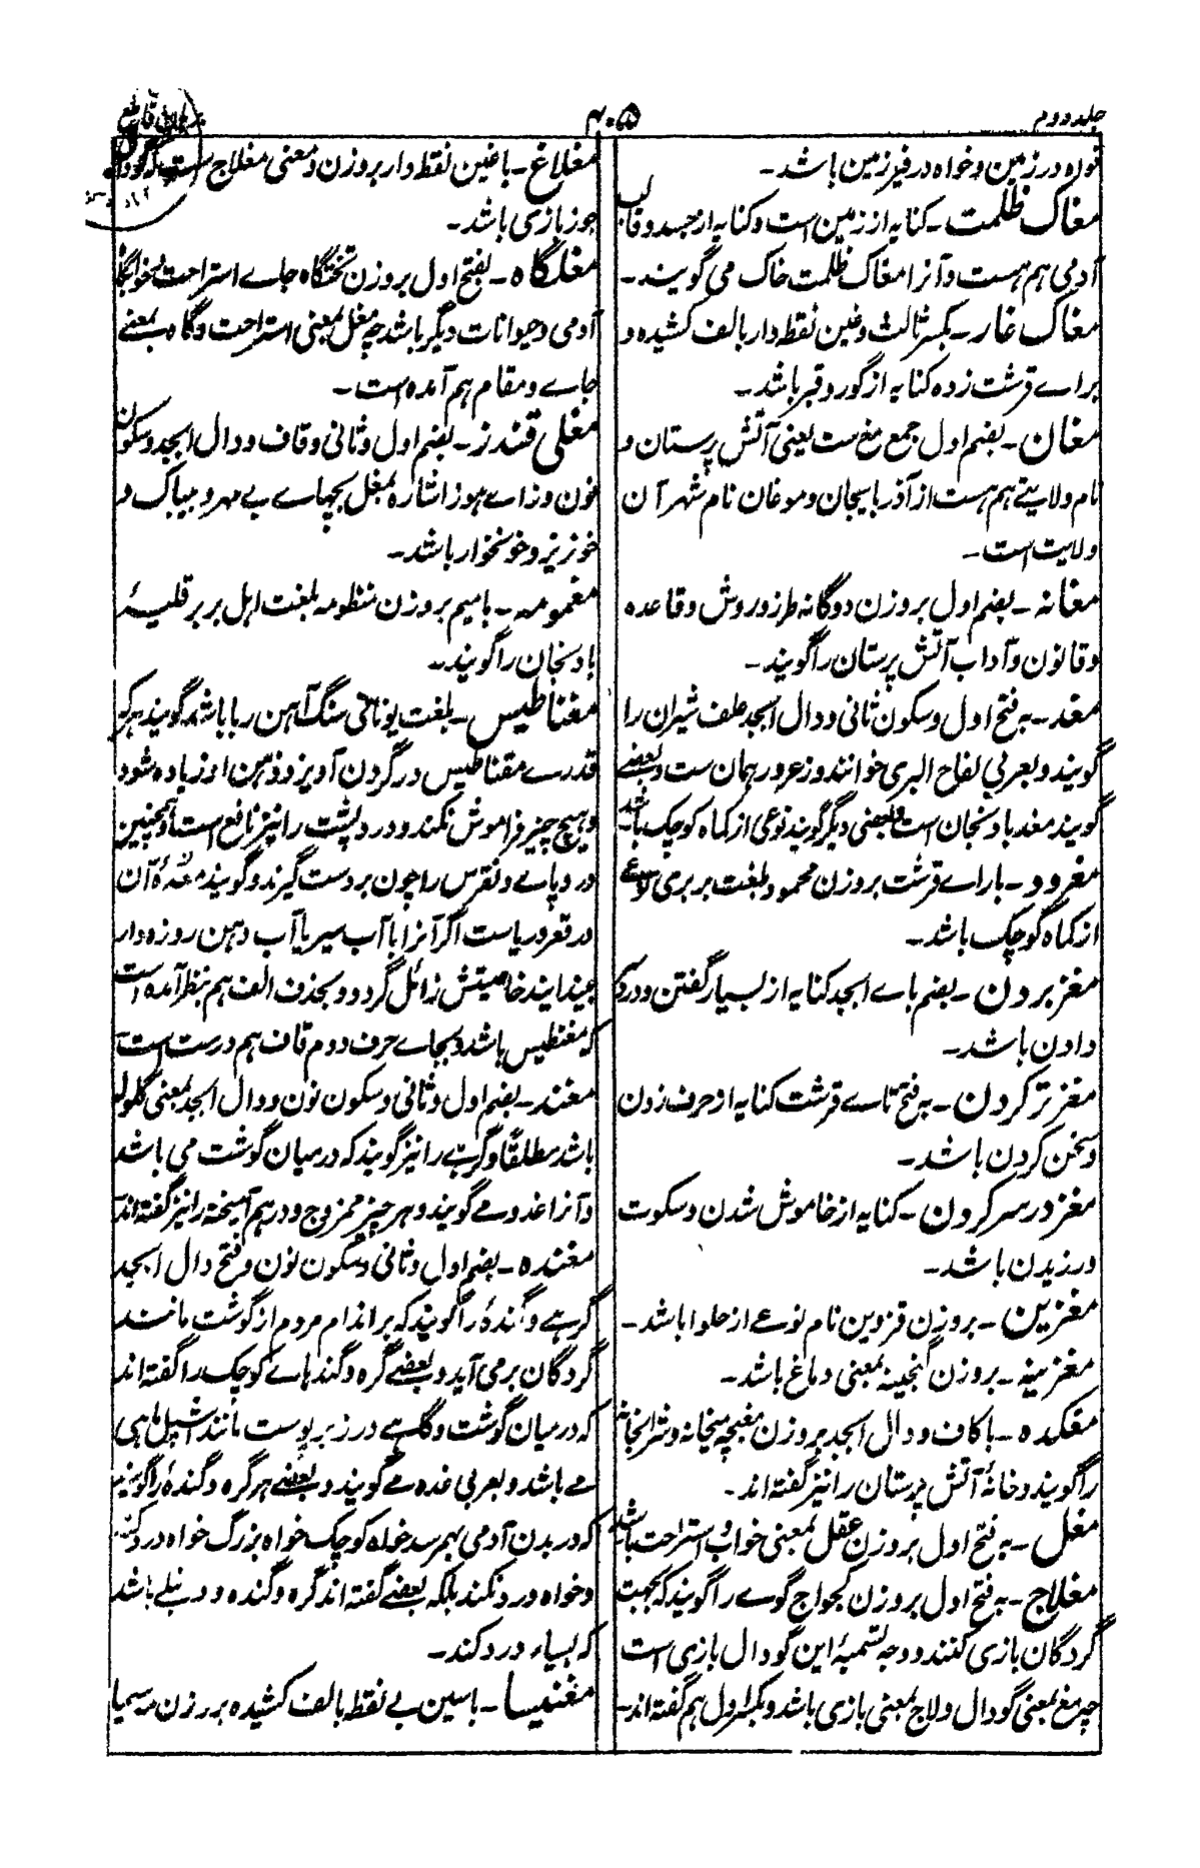 جلد دوم
۴۰۵
برهان قاطع
خواه در زمین و خواه در غیر زمین باشد۔
مغاک ظلمت۔ کنایه از زمین است و کنایه از جسد و قالب
آدمی هم هست و آنرا مغاک ظلمت خاک می گویند۔
مغاک غار۔ بکسر ثالث و غین نقطه دار بالف کشیده و
براے قرشت زده کنایه از گور و قبر باشد۔
مغان۔ بضم اول جمع مغ ست یعنی آتش پرستان و
نام ولایتے هم هست از آذربایجان و موغان نام شهر آن
ولایت است۔
مغانه۔ بضم اول بر وزن دوگانه طرز و روش و قاعده
و قانون و آداب آتش پرستان را گویند۔
مغد۔ به فتح اول و سکون ثانی و دال ابجد علف شیران را
گویند و بعربی لفاح البری خوانند و زعرور همان ست و بعضے
گویند مغد بادنجان است و بعضی دیگر گویند نوعی از کماه کوچک باشد
مغرود۔ با راے قرشت بر وزن محمود بلغت بربری نوعے
از کماه کوچک باشد۔
مغز بردن۔ بضم باے ابجد کنایه از بسیار گفتن و دردسر
دادن باشد۔
مغز تر کردن۔ به فتح تاے قرشت کنایه از حرف زدن
و سخن کردن باشد۔
مغز در سر کردن۔ کنایه از خاموش شدن و سکوت
ورزیدن باشد۔
مغزین۔ بر وزن قزوین نام نوعے از حلوا باشد۔
مغزینه۔ بر وزن گنجینه بمعنی دماغ باشد۔
مغکده۔ با کاف و دال ابجد بر وزن مغبچه میخانه و شرابخانه
را گویند و خانهٔ آتش پرستان را نیز گفته اند۔
مغل۔ به فتح اول بر وزن عقل بمعنی خواب و استراحت باشد
مغلاج۔ به فتح اول بر وزن کجواج گوے را گویند که بجهت
گردگان بازی کنند و وجه تسمیهٔ این گودال بازی است
چه مغ بمعنی گودال و لاج بمعنی بازی باشد و بکسر اول هم گفته اند۔
مغلاغ۔ با غین نقطه دار بر وزن و معنی مغلاج ست که گودال
جوز بازی باشد۔
مغلگاه۔ بفتح اول بر وزن تختگاه جاے استراحت و خوابگاه
آدمی و حیوانات دیگر باشد چه مغل بمعنی استراحت و گاه بمعنے
جاے و مقام هم آمده است۔
مغلی قندز۔ بضم اول و ثانی و قاف و دال ابجد و سکون
نون و زاے هوز اشاره بمغل بچهاے بے مهر و بیباک و
خونریز و خونخوار باشد۔
مغمومه۔ با میم بر وزن منظومه بلغت اهل بربر قلیهٔ
بادنجان را گویند۔
مغناطیس۔ بلغت یونانی سنگ آهن ربا باشد گویند هر که
قدرے مقناطیس در گردن آویزد ذهن او زیاده شود
و هیچ چیز فراموش نکند و درد پشت را نیز نافع است و همچنین
درد پاے و نقرس را چون بر دست گیرند و گویند معدهٔ آن
در قعر دریاست اگر آنرا با آب سیر یا آب دهن روزه دار
بیندایند خاصیتش زائل گردد و بحذف الف هم بنظر آمده است
که مغنطیس باشد و بجاے حرف دوم قاف هم درست است
مغند۔ بضم اول و ثانی و سکون نون و دال ابجد بمعنی گلوله
باشد مطلقاً و گرهے را نیز گویند که در میان گوشت می باشد
و آنرا غدود مے گویند و هر چیز ممزوج و در هم آمیخته را نیز گفته اند
مغنده۔ بضم اول و ثانی و سکون نون و فتح دال ابجد
گرهے و گندهٔ را گویند که بر اندام مردم از گوشت مانند
گردگان برمی آید و بعضے گره و گندهاے کوچک را گفته اند
که در میان گوشت و گاهے در زیر پوست مانند اشپل ماهی
مے باشد و بعربی غده مے گویند و بعضے هر گره و گندهٔ را گویند
که در بدن آدمی بهم رسد خواه کوچک خواه بزرگ خواه درد کند
و خواه درد نکند بلکه بعضے گفته اند گره و گنده و دنبلے باشد
که بسیار درد کند۔
مغنیسا۔ با سین بے نقطه بالف کشیده بر وزن مرسیا